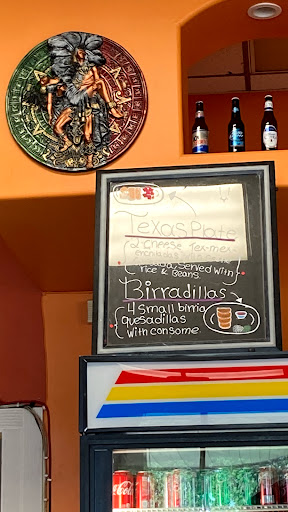 Texas Plate
2 Cheese Tex-mex
enchiladas
asada, served with
rice & Beans.
Birradillas
4 small birria
quesadillas
with consome.
Coca-Cola